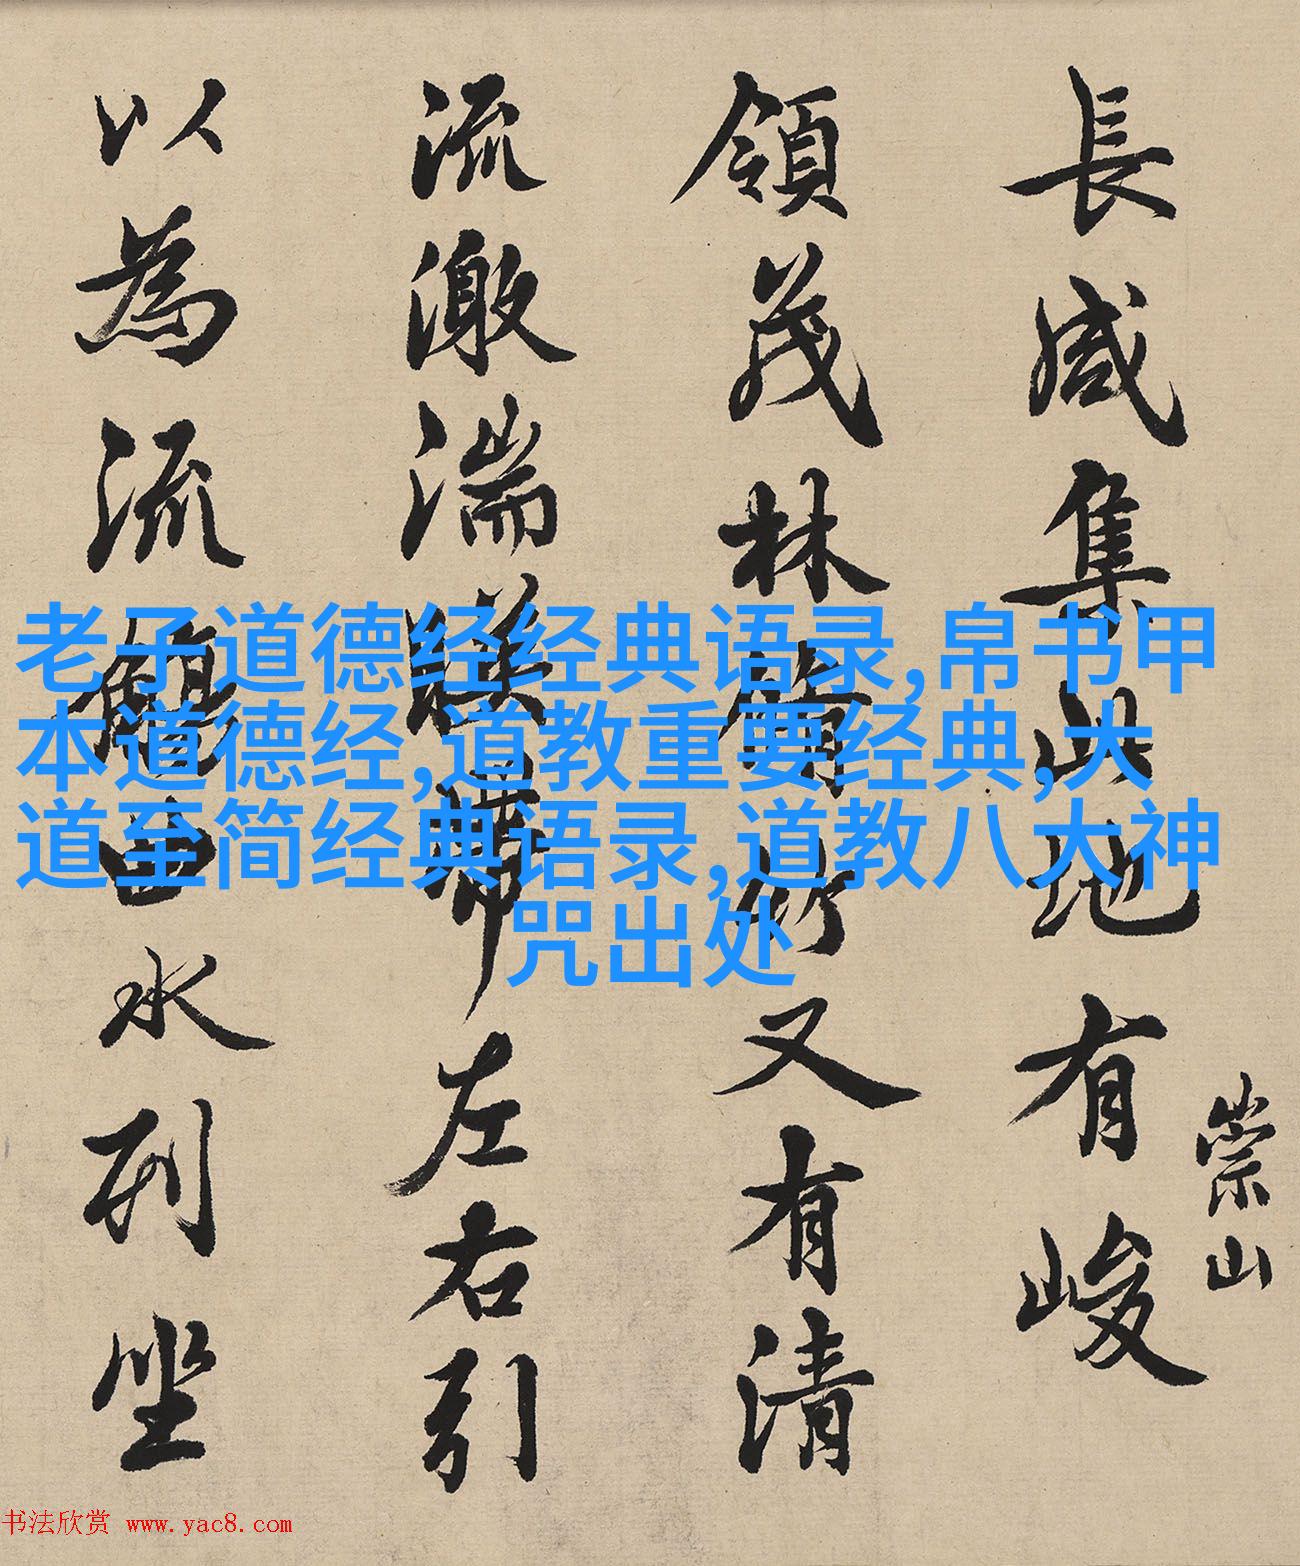 長咸集此地有峻
崇山
領茂林脩竹又有清
流激湍暎帶左右引
以為流觴曲水列坐
老子道德经经典语录,帛书甲
本道德经,道教重要经典,大
道至简经典语录,道教八大神
咒出处
书法欣赏 www.yac8.com